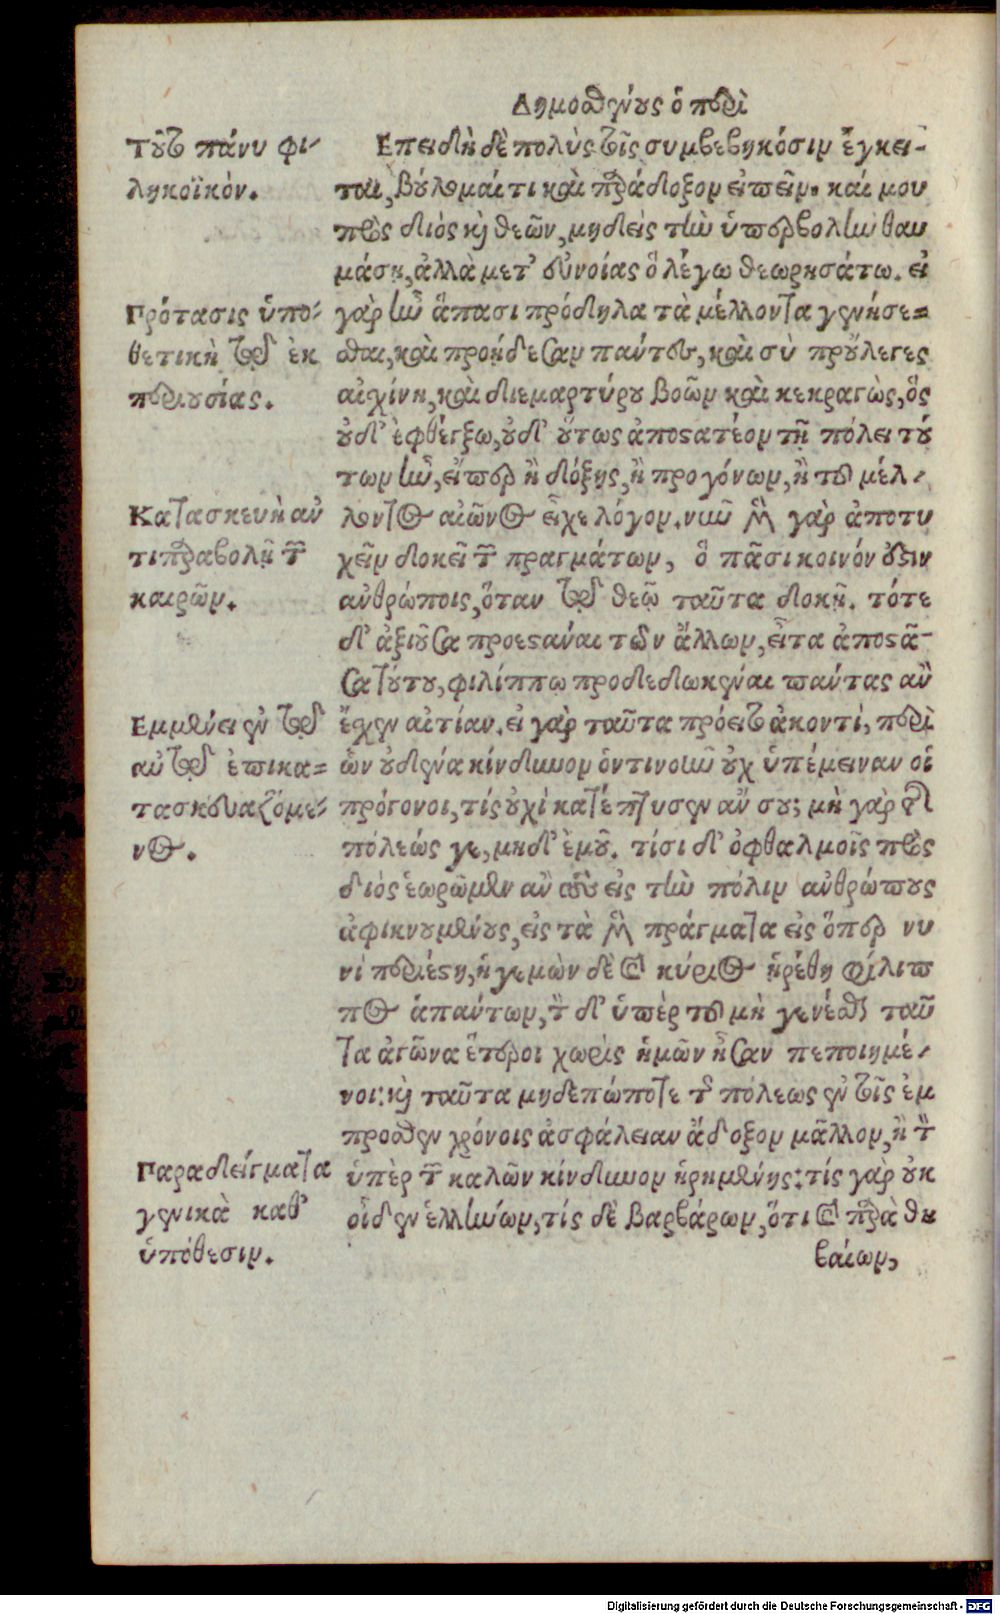 Δημοσθένους ὁ περὶ
Τοῦτο πάνυ φι-
ληκοϊκόν.
Ἐπειδὴ δὲ πολὺς τοῖς συμβεβηκόσιν ἔγκει-
ται, βούλομαί τι καὶ παράδοξον εἰπεῖν. καί μου
πρὸς διὸς καὶ θεῶν, μηδεὶς τὴν ὑπερβολὴν θαυ
μάσῃ, ἀλλὰ μετ' εὐνοίας ὃ λέγω θεωρησάτω. εἰ
Πρότασις ὑπο-
θετικὴ τοῦ ἐκ
περιουσίας.
γὰρ ἦν ἅπασι πρόδηλα τὰ μέλλοντα γενήσε=
σθαι, καὶ προῄδεσαν πάντες, καὶ σὺ προὔλεγες
αἰσχίνη, καὶ διεμαρτύρου βοῶν καὶ κεκραγὼς, ὃς
οὐδ' ἐφθέγξω, οὐδ' οὕτως ἀποστατέον τῇ πόλει τού
των ἦν, εἴπερ ἢ δόξης, ἢ προγόνων, ἢ τοῦ μέλ-
Κατασκευὴ ἀν
τιπαραβολῇ τῶν
καιρῶν.
λοντος αἰῶνος εἶχε λόγον. νῦν μὲν γὰρ ἀποτυ
χεῖν δοκεῖ τῶν πραγμάτων, ὃ πᾶσι κοινόν ἐστιν
ἀνθρώποις, ὅταν τῷ θεῷ ταῦτα δοκῇ. τότε
δ' ἀξιοῦσα προεστάναι τῶν ἄλλων, εἶτα ἀποστᾶ-
σα τούτου, φιλίππῳ προδεδωκέναι πάντας ἂν
Ἐμμένει ἐν τῷ
αὐτῷ ἐπικα=
τασκευαζόμε-
νος.
ἔσχεν αἰτίαν. εἰ γὰρ ταῦτα πρόειτο ἀκοντί, περὶ
ὧν οὐδένα κίνδυνον ὁντινοῦν οὐχ ὑπέμειναν οἱ
πρόγονοι, τίς οὐχὶ κατέπτυσεν ἄν σου; μὴ γὰρ τῆς
πόλεώς γε, μηδ' ἐμοῦ. τίσι δ' ὀφθαλμοῖς πρὸς
διὸς ἑωρῶμεν ἂν τοὺς εἰς τὴν πόλιν ἀνθρώπους
ἀφικνουμένους, εἰς τὰ μὲν πράγματα εἰς ὅπερ νυ
νὶ περιέστη, ἡγεμὼν δὲ καὶ κύριος ᾑρέθη φίλιπ
πος ἁπάντων, τὸν δ' ὑπὲρ τοῦ μὴ γενέσθαι ταῦ
τα ἀγῶνα ἕτεροι χωρὶς ἡμῶν ἦσαν πεποιημέ-
νοι; καὶ ταῦτα μηδεπώποτε τῆς πόλεως ἐν τοῖς ἔμ
προσθεν χρόνοις ἀσφάλειαν ἄδοξον μᾶλλον, ἢ τὸν
Παραδείγματα
γενικὰ καθ'
ὑπόθεσιν.
ὑπὲρ τῶν καλῶν κίνδυνον ᾑρημένης; τίς γὰρ οὐκ
οἶδεν ἑλλήνων, τίς δὲ βαρβάρων, ὅτι καὶ παρὰ θη
βαίων,
Digitalisierung gefördert durch die Deutsche Forschungsgemeinschaft - DFG